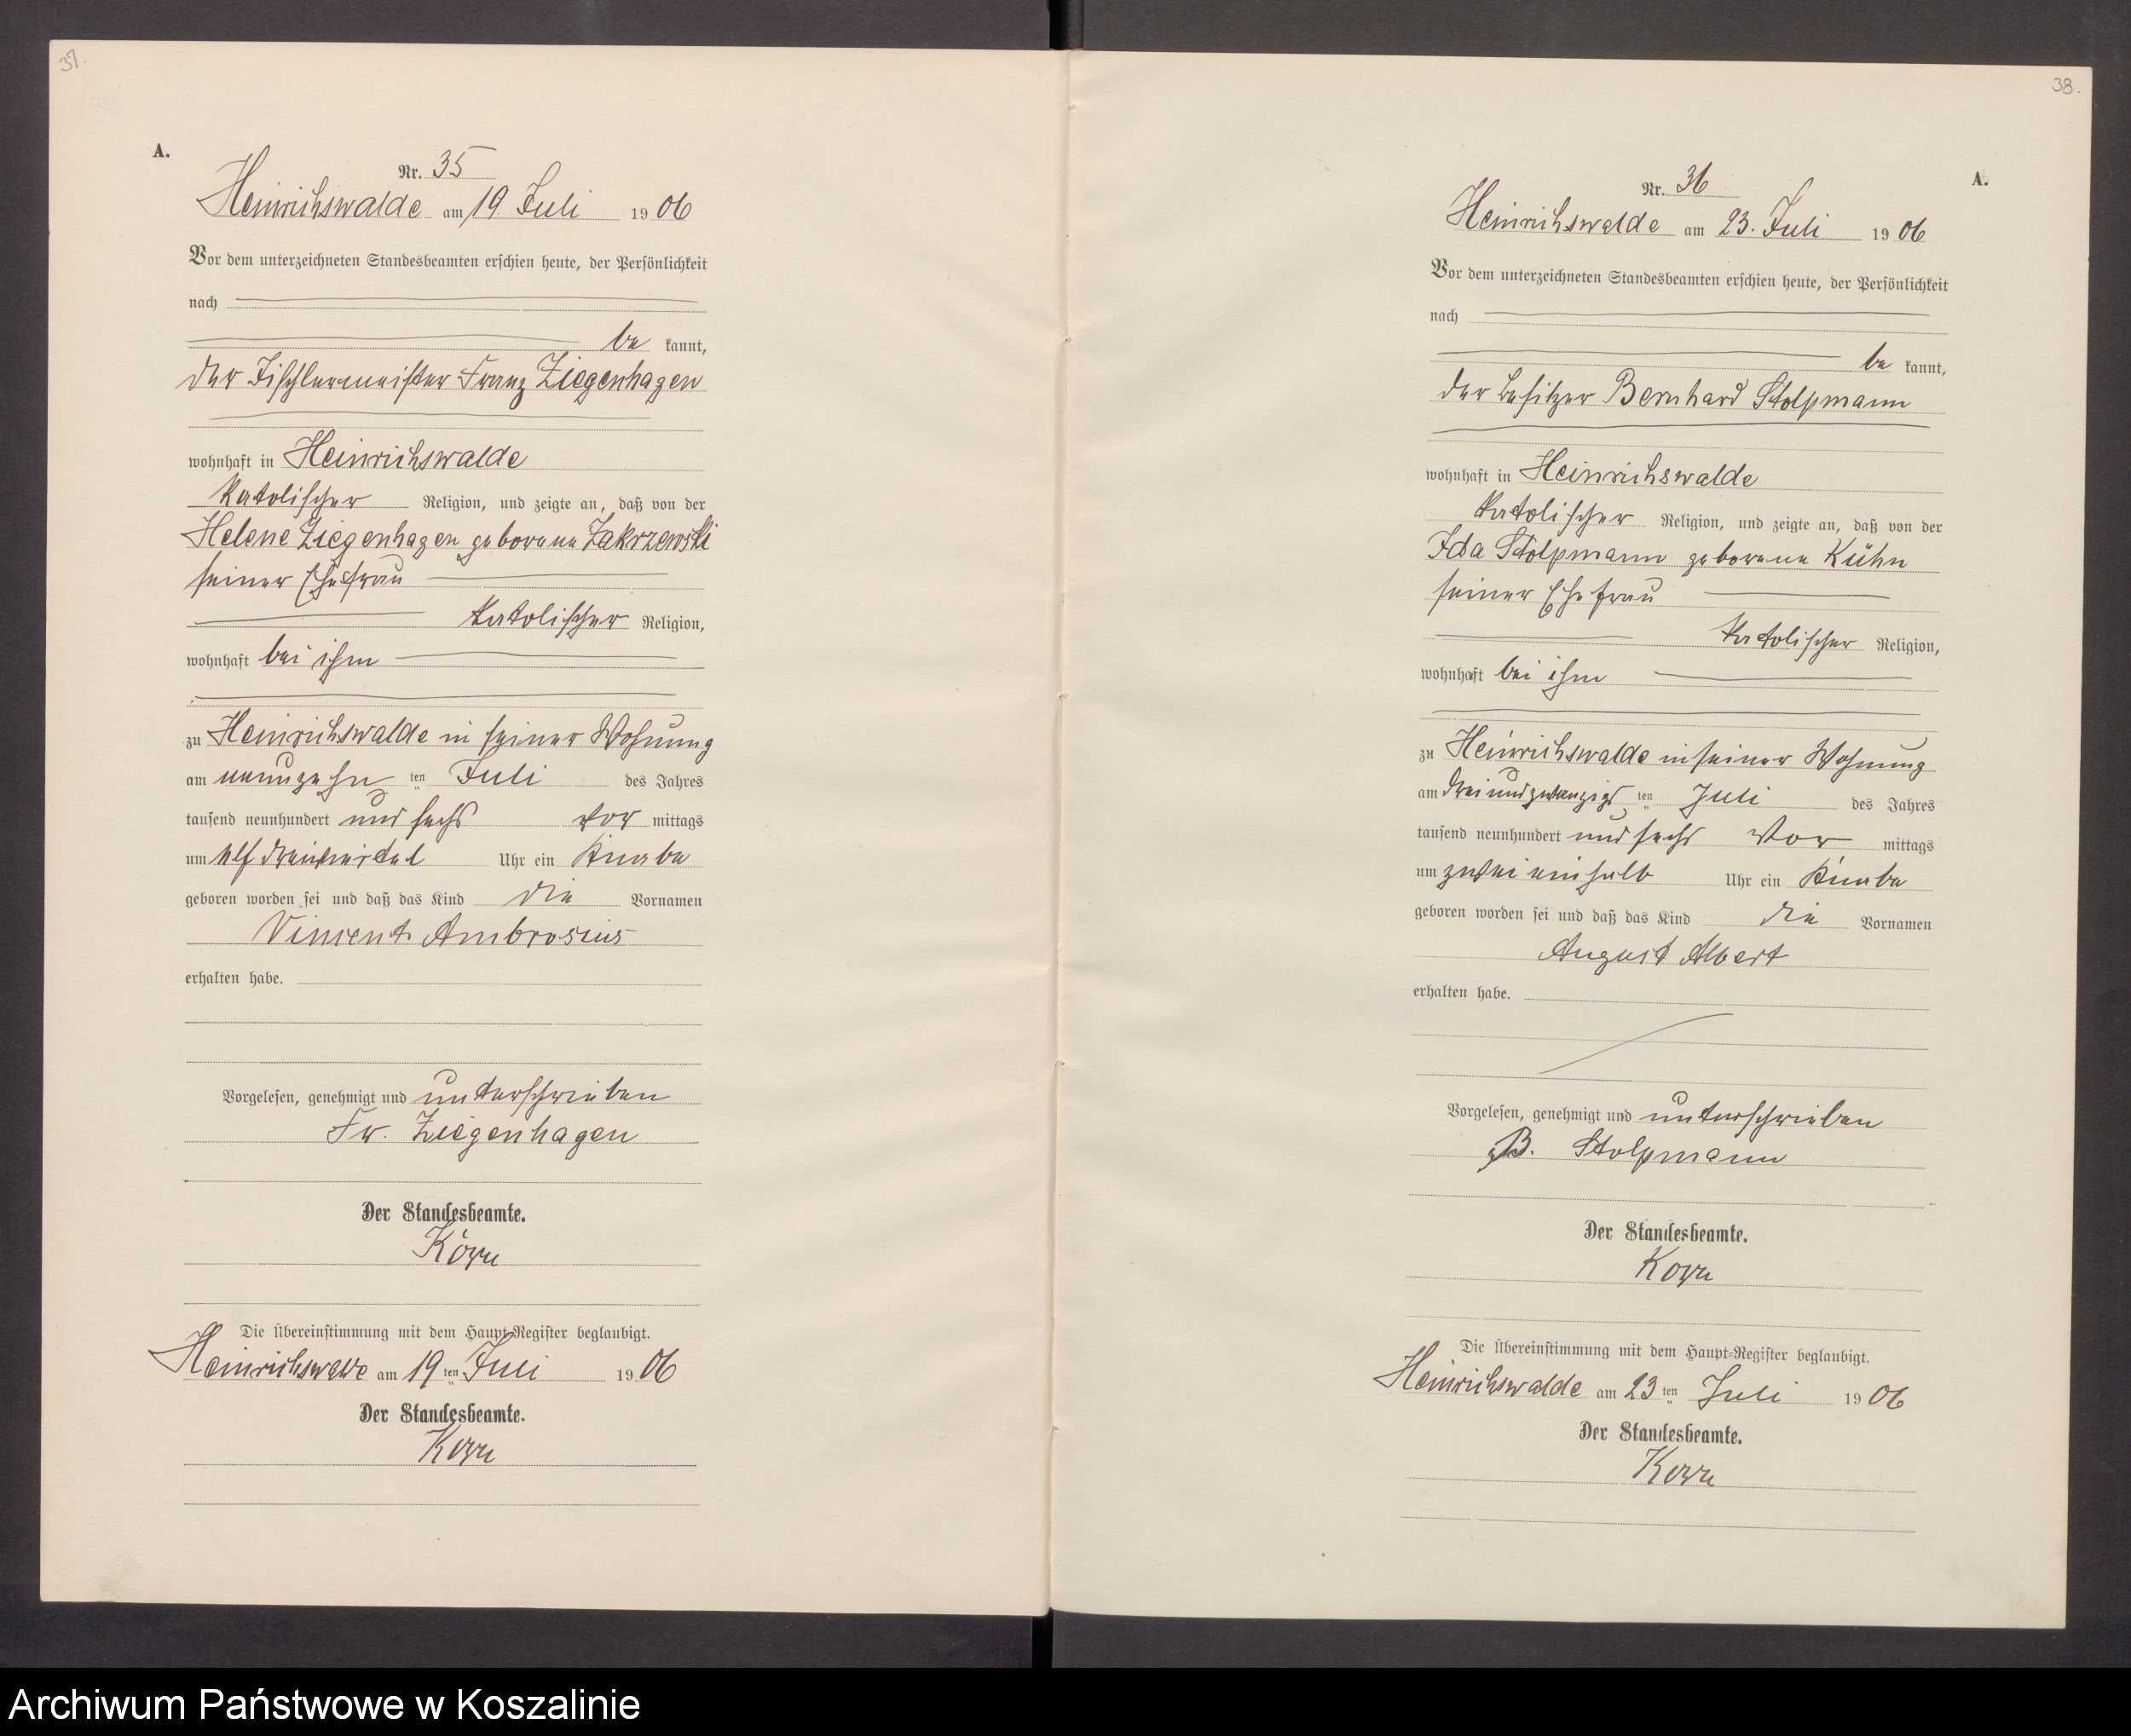 37.
A.
Nr. 35
Heinrichswalde am 19 Juli 1906
Vor dem unterzeichneten Standesbeamten erschien heute, der Persönlichkeit
nach
be kannt,
der Tischlermeister Franz Ziegenhagen
wohnhaft in Heinrichswalde
katolischer Religion, und zeigte an, daß von der
Helene Ziegenhagen geborene Zakrzewski
seiner Ehefrau
katolischer Religion,
wohnhaft bei ihm
zu Heinrichswalde in seiner Wohnung
am neunzehn ten Juli des Jahres
tausend neunhundert und sechs vor mittags
um elf dreiviertel Uhr ein Knabe
geboren worden sei und daß das Kind die Vornamen
Vincent Ambrosius
erhalten habe.
Vorgelesen, genehmigt und unterschrieben
Fr. Ziegenhagen
Der Standesbeamte.
Korn
Die Übereinstimmung mit dem Haupt-Register beglaubigt.
Heinrichswalde am 19 ten Juli 1906
Der Standesbeamte.
Korn
38.
A.
Nr. 36
Heinrichswalde am 23. Juli 1906
Vor dem unterzeichneten Standesbeamten erschien heute, der Persönlichkeit
nach
be kannt,
der Besitzer Bernhard Stolpmann
wohnhaft in Heinrichswalde
katolischer Religion, und zeigte an, daß von der
Ida Stolpmann geborene Kühn
seiner Ehefrau
katolischer Religion,
wohnhaft bei ihm
zu Heinrichswalde in seiner Wohnung
am dreiundzwanzigs ten Juli des Jahres
tausend neunhundert und sechs Vor mittags
um zwei einhalb Uhr ein Knabe
geboren worden sei und daß das Kind die Vornamen
August Albert
erhalten habe.
Vorgelesen, genehmigt und unterschrieben
B. Stolpmann
Der Standesbeamte.
Korn
Die Übereinstimmung mit dem Haupt-Register beglaubigt.
Heinrichswalde am 23 ten Juli 1906
Der Standesbeamte.
Korn
Archiwum Państwowe w Koszalinie